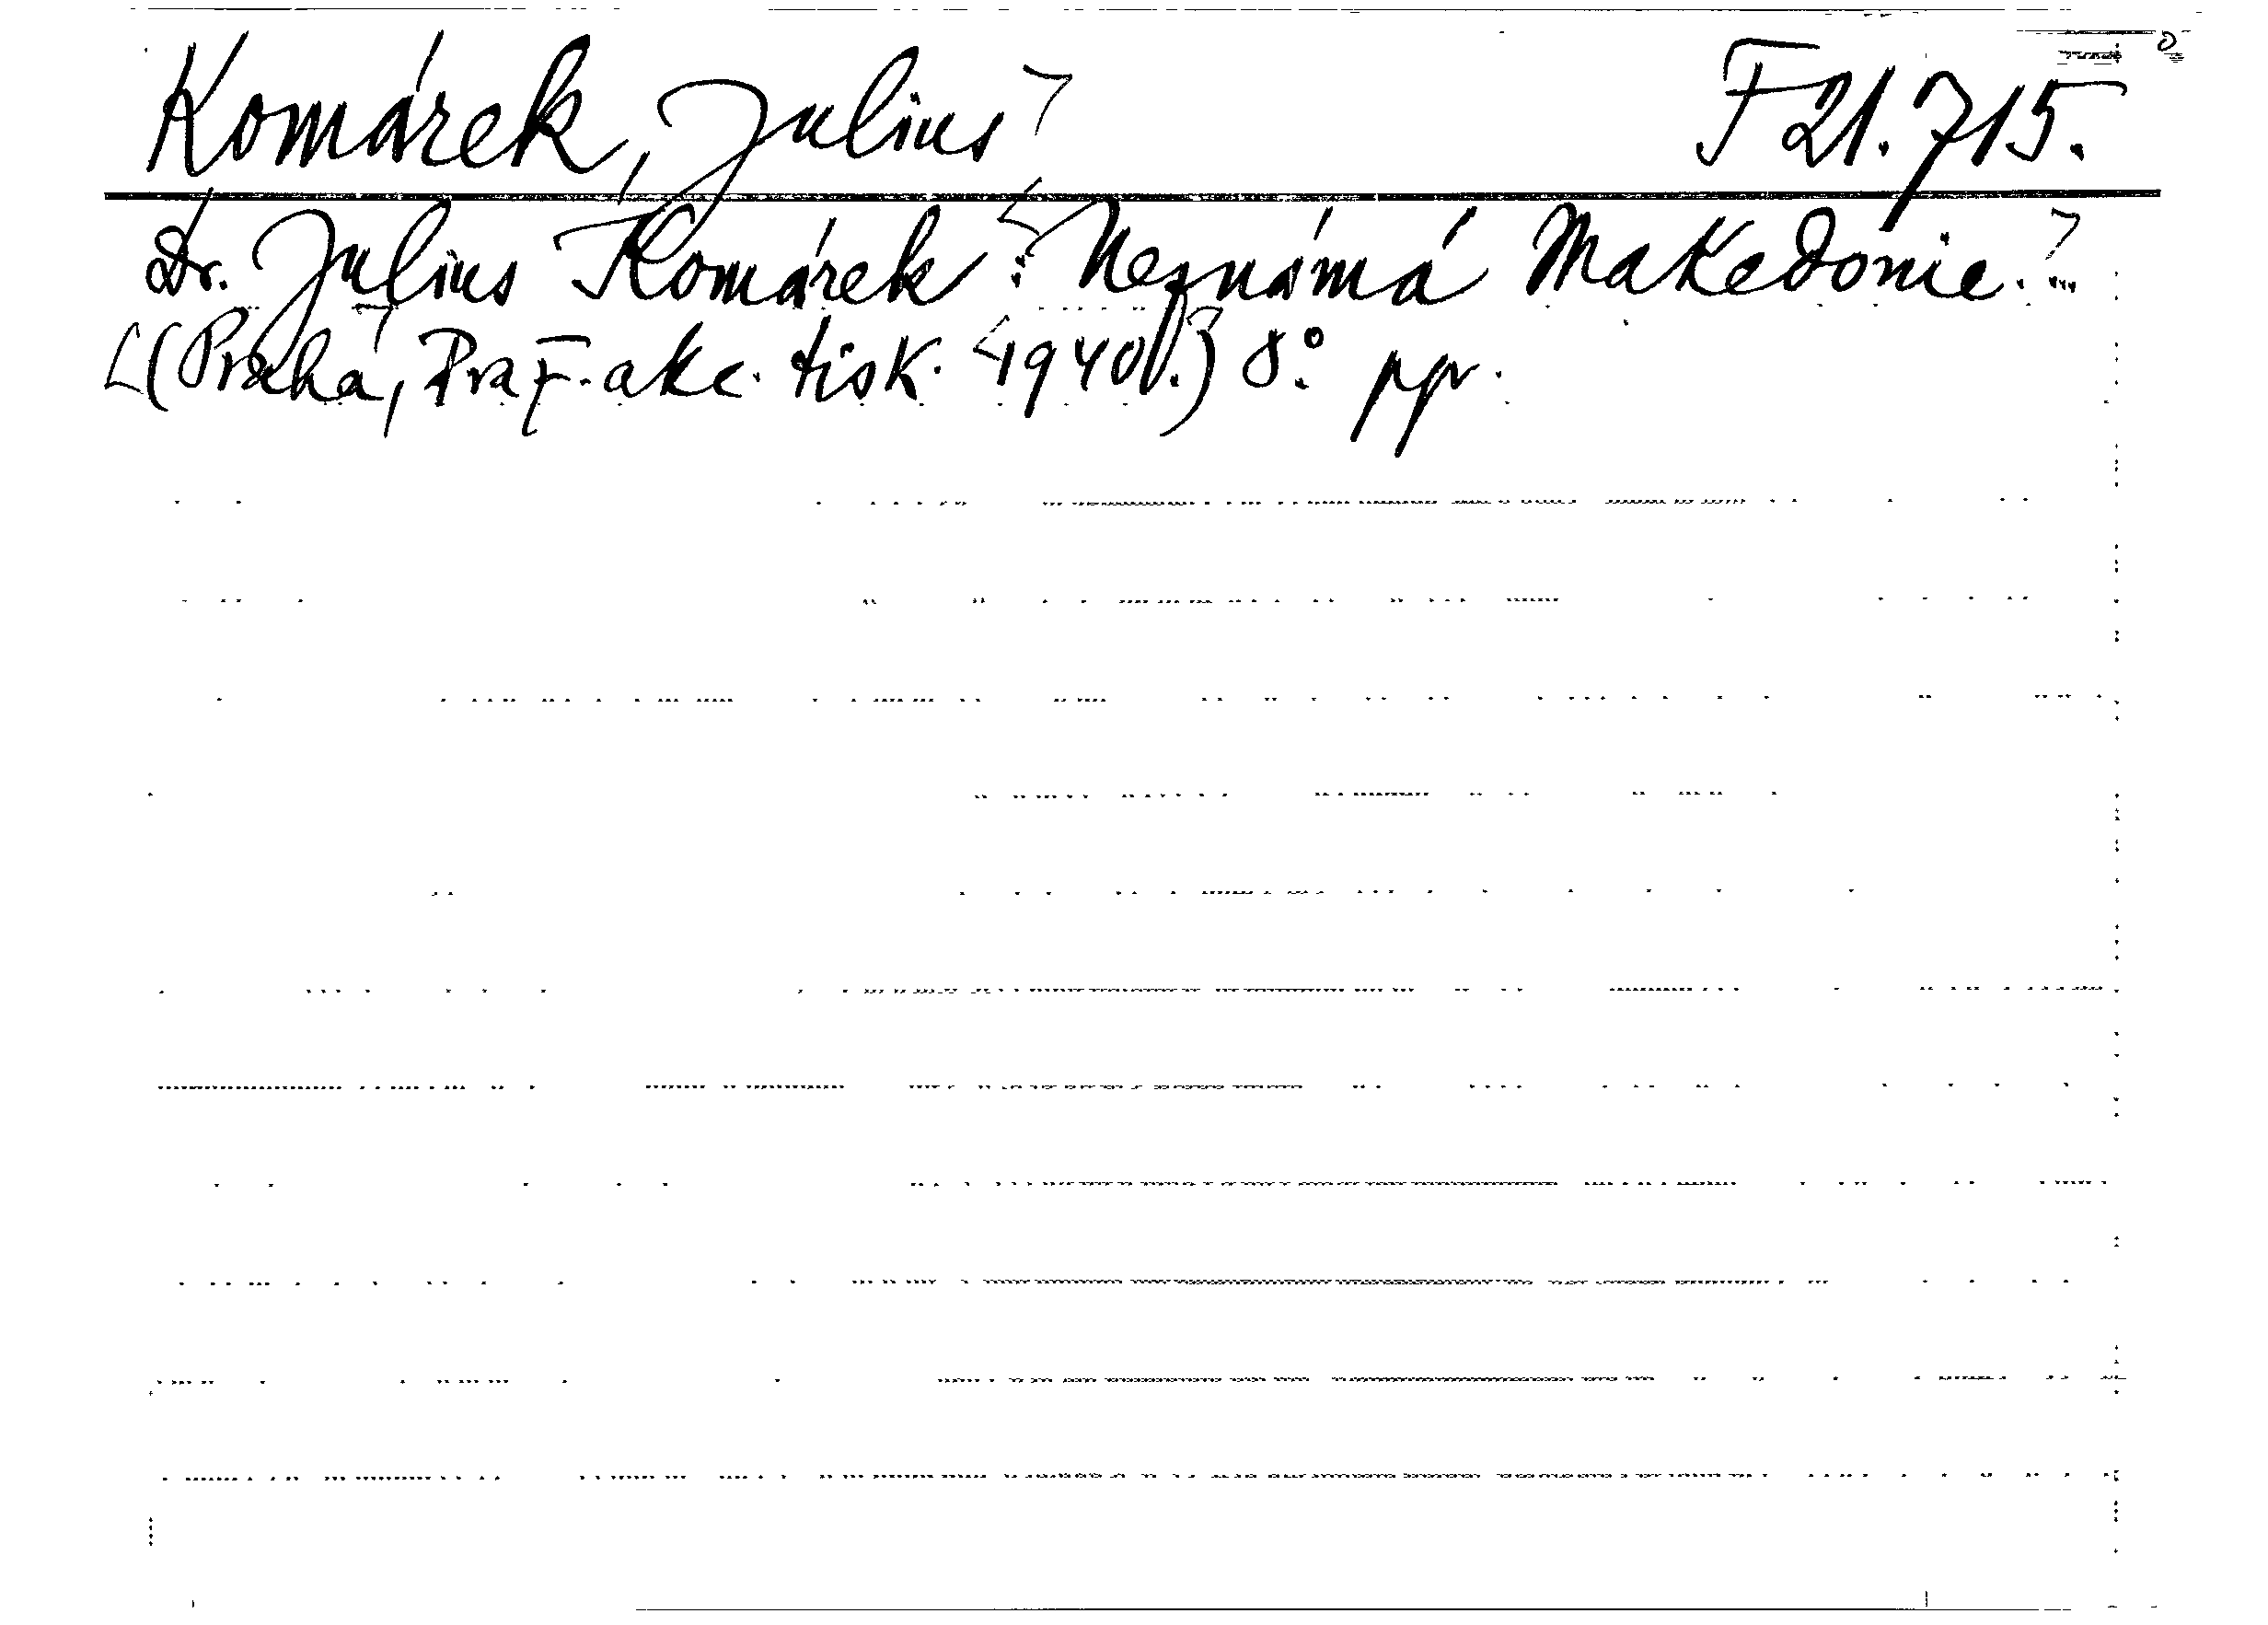 Komárek, Julius F 21.715.
Dr. Julius Komárek: Neznámá Makedonie.
(Praha, Praž. akc. tisk. 1940.) 8° ppr.